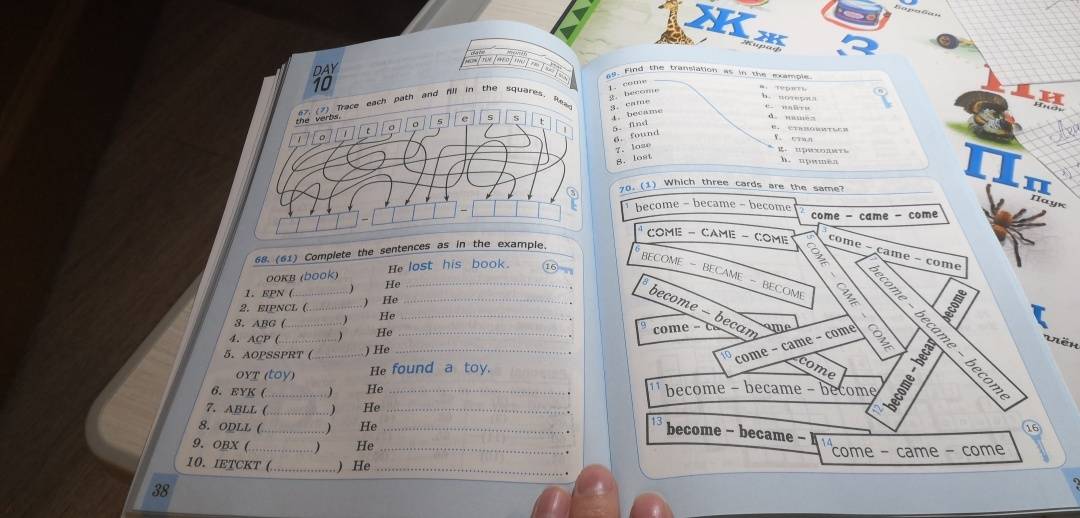 DAY
10
date month year
MON TUE WED THU FRI SAT SUN
67. (7) Trace each path and fill in the squares. Read
the verbs.
l o i t o o s e s s t l
5
68. (61) Complete the sentences as in the example.
OOKB (book) He lost his book.
16
1. EPN (............) He .
2. EIPNCL (............) He .
3. ABG (............) He .
4. ACP (............) He .
5. AOPSSPRT (............) He .
OYT (toy) He found a toy.
6. EYK (............) He .
7. ABLL (............) He .
8. ODLL (............) He .
9. OBX (............) He .
10. IETCKT (............) He .
38
69. Find the translation as in the example.
1. come
2. become
3. came
4. became
5. find
6. found
7. lose
8. lost
a. терять
b. потерял
c. найти
d. нашёл
e. становиться
f. стал
g. приходить
h. пришёл
70. (1) Which three cards are the same?
1 become – became – become
2 come – came – come
3 come – came – come
4 COME – CAME – COME
5 COME – CAME – COME
6 BECOME – BECAME – BECOME
7 become – became – become
8 become – becam come
9 come – ca ome
10 come – came – come
11 become – became – become
12 become – becam become
13 become – became –
14 come – came – come
16
Жж
Жираф
Барабан
З
Ии
Инд
Пп
Паук